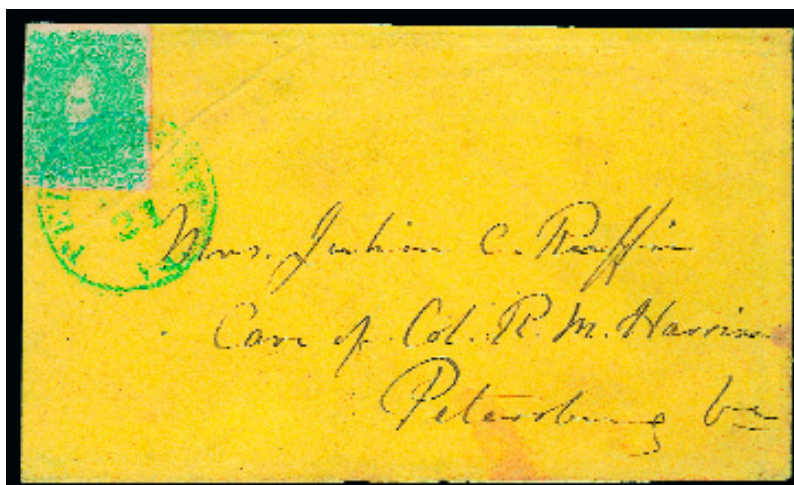 21
Mrs. Julian C. Ruffin
Care of Col. R. M. Harrison
Petersburg Va